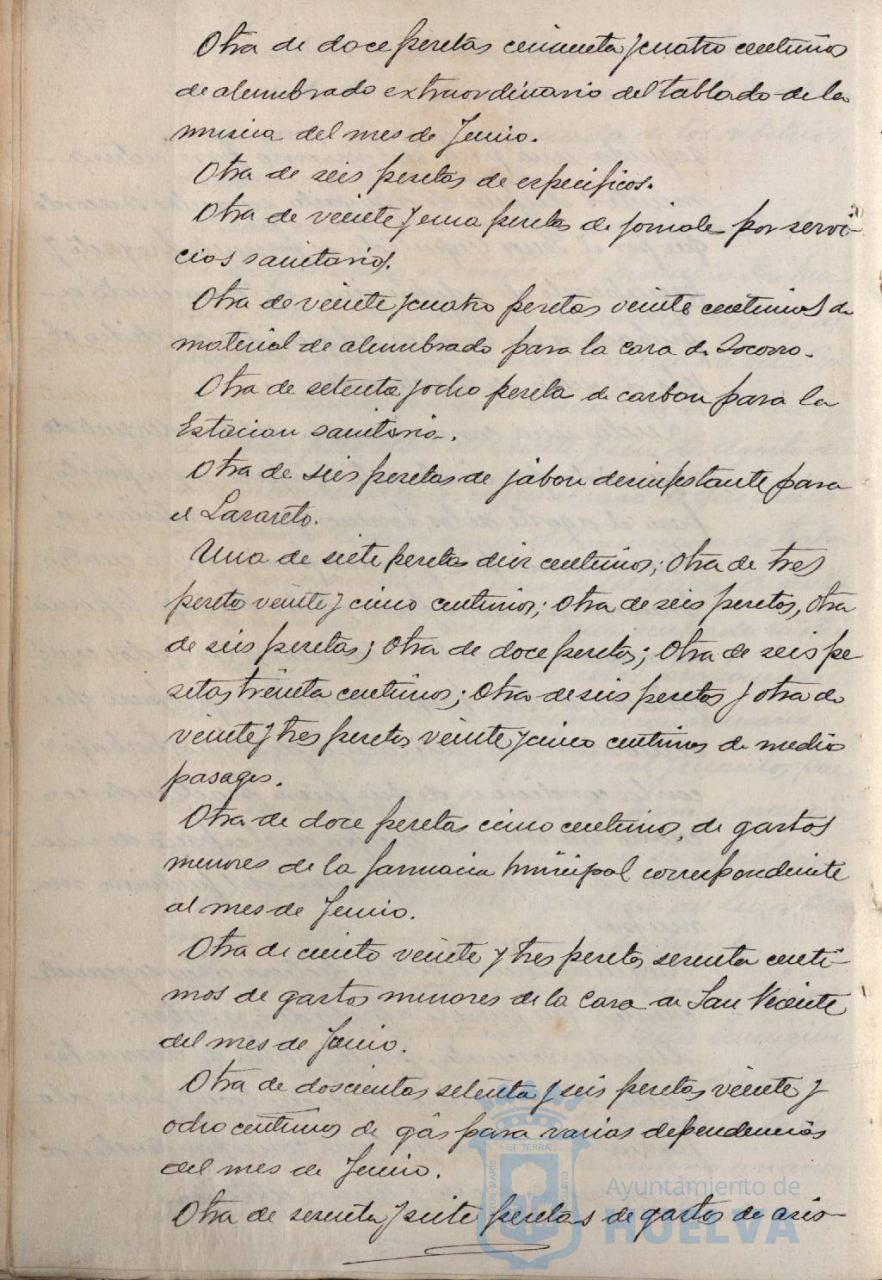 Otra de doce pesetas cincuenta y cuatro centimos
de alumbrado extraordinario del tablado de la
musica del mes de Junio.
Otra de seis pesetas de especificos.
Otra de veinte y una pesetas de jornale por servi-
cios sanitarios.
Otra de veinte y cuatro pesetas veinte centimos de
material de alumbrado para la casa de Socorro.
Otra de setenta y ocho peseta de carbon para la
Estacion sanitaria.
Otra de seis pesetas de jabon desinfestante para
el Lazareto.
Una de siete pesetas diez centimos; Otra de tres
pesetas veinte y cinco centimos; Otra de seis pesetas, Otra
de seis pesetas; Otra de doce pesetas; Otra de seis pe
setas treinta centimos; Otra de seis pesetas y otra de
veinte y tres pesetas veinte y cinco centimos de medios
pasages.
Otra de doce pesetas cinco centimos, de gastos
menores de la farmacia municipal correspondiente
al mes de Junio.
Otra de ciento veinte y tres pesetas sesenta centi-
mos de gastos menores de la Casa de San Vicente
del mes de Junio.
Otra de doscientas setenta y seis pesetas veinte y
ocho centimos de gas para varias dependencias
del mes de Junio.
Otra de sesenta y siete pesetas de gastos de aseo
Ayuntamiento de
HUELVA